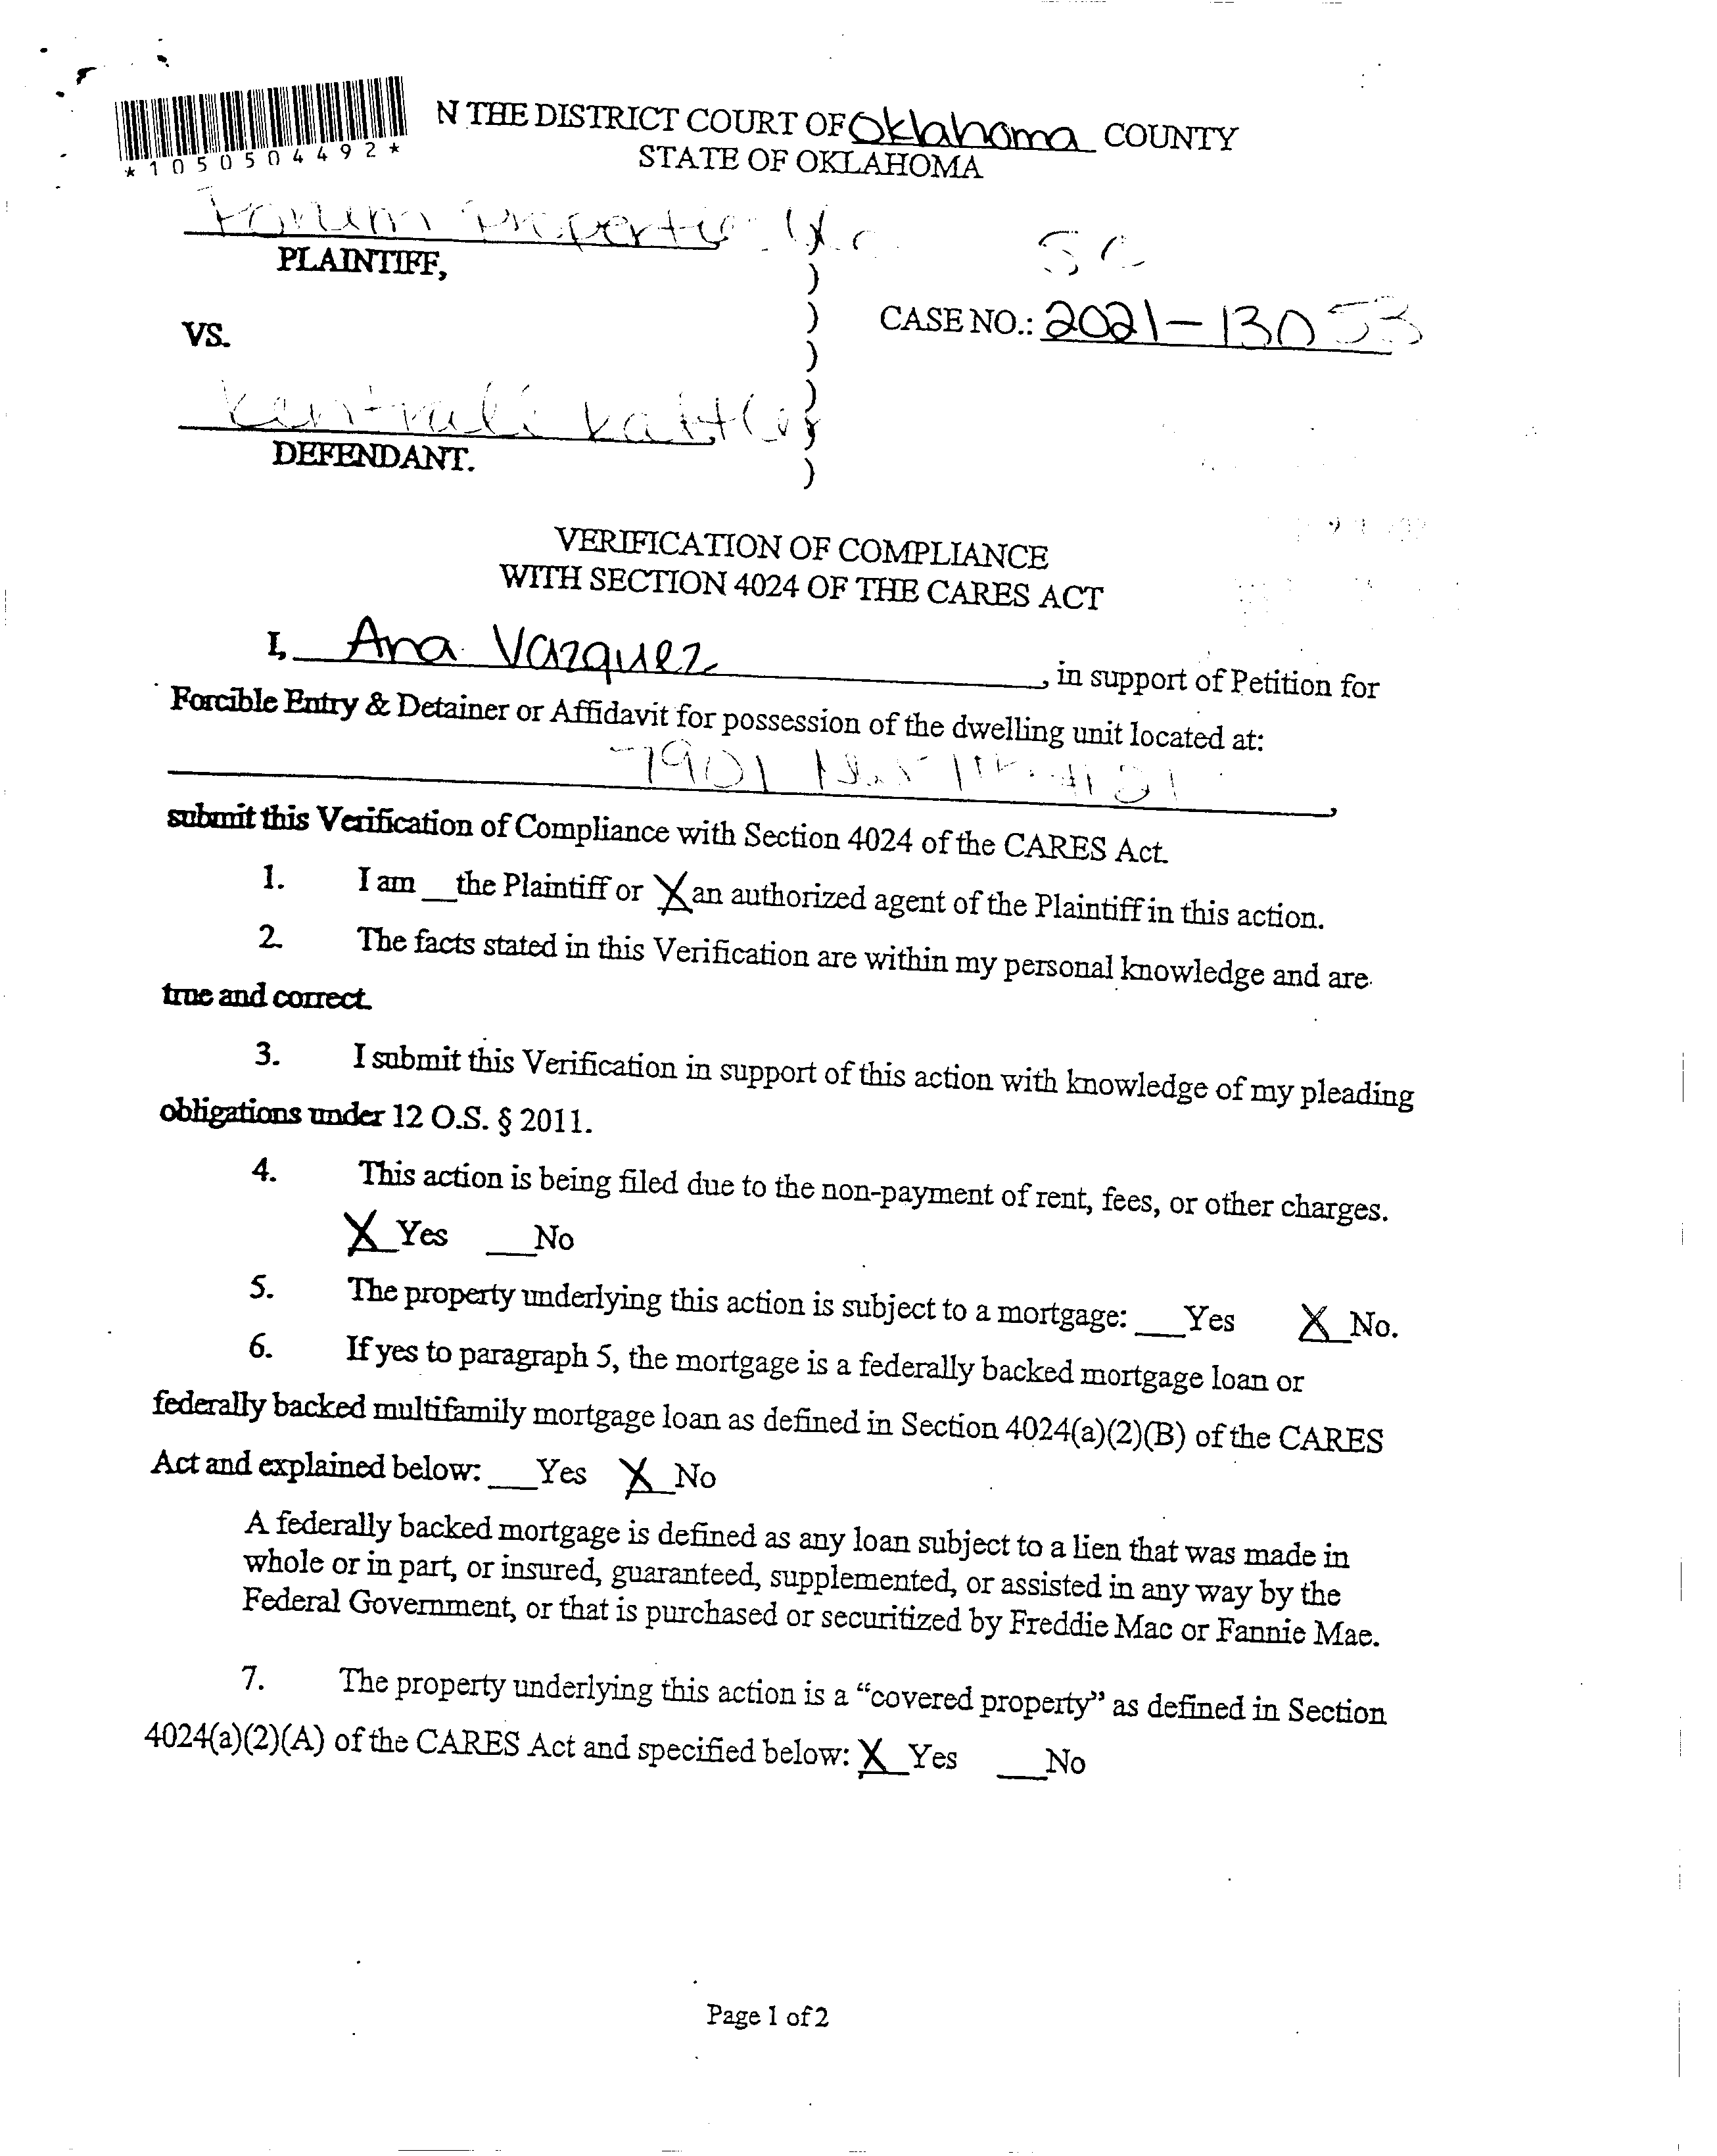 N THE DISTRICT COURT OF Oklahoma COUNTY
*1050504492*
STATE OF OKLAHOMA
SC
PLAINTIFF,
CASE NO.: 2021-13053
VS.
DEFENDANT.
VERIFICATION OF COMPLIANCE
WITH SECTION 4024 OF THE CARES ACT
I, Ana Vazquez, in support of Petition for
Forcible Entry & Detainer or Affidavit for possession of the dwelling unit located at:
7901
submit this Verification of Compliance with Section 4024 of the CARES Act.
1. I am __the Plaintiff or X an authorized agent of the Plaintiff in this action.
2. The facts stated in this Verification are within my personal knowledge and are
true and correct.
3. I submit this Verification in support of this action with knowledge of my pleading
obligations under 12 O.S. § 2011.
4. This action is being filed due to the non-payment of rent, fees, or other charges.
X Yes ___No
5. The property underlying this action is subject to a mortgage: ___Yes X No.
6. If yes to paragraph 5, the mortgage is a federally backed mortgage loan or
federally backed multifamily mortgage loan as defined in Section 4024(a)(2)(B) of the CARES
Act and explained below: ___Yes X No
A federally backed mortgage is defined as any loan subject to a lien that was made in
whole or in part, or insured, guaranteed, supplemented, or assisted in any way by the
Federal Government, or that is purchased or securitized by Freddie Mac or Fannie Mae.
7. The property underlying this action is a “covered property” as defined in Section
4024(a)(2)(A) of the CARES Act and specified below: X Yes ___No
Page 1 of 2